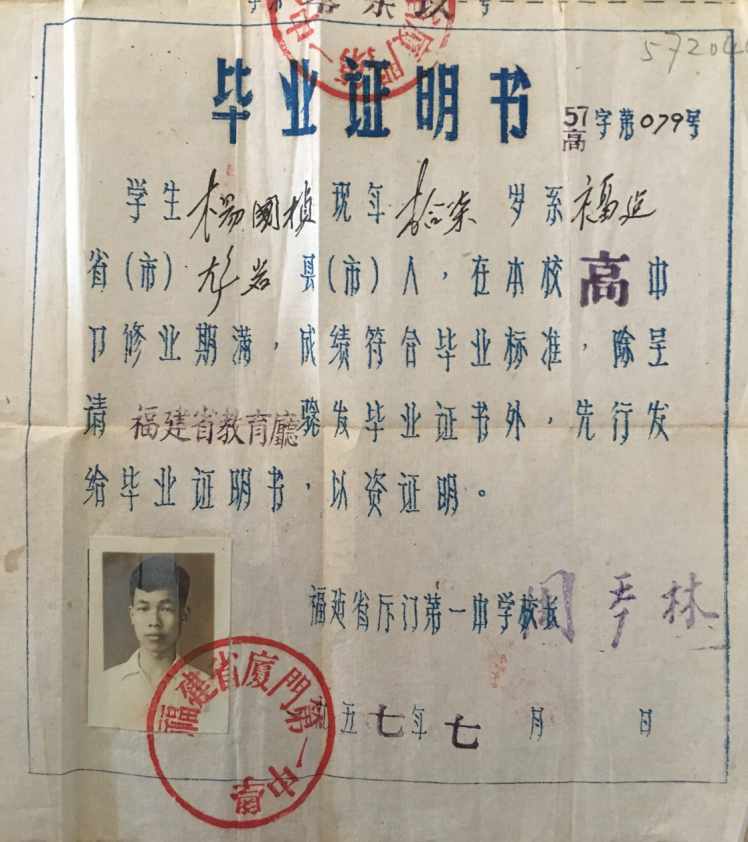 57204
毕业证明书
57高字第079号
学生杨國楨现年拾柒岁系福建
省(市)龙岩县(市)人,在本校高中
部修业期满,成绩符合毕业标准,除呈
请福建省教育廳验发毕业证书外,先行发
给毕业证明书,以资证明。
福建省厦门第一中学校长
五七年七月 日
福建省廈門第一中學